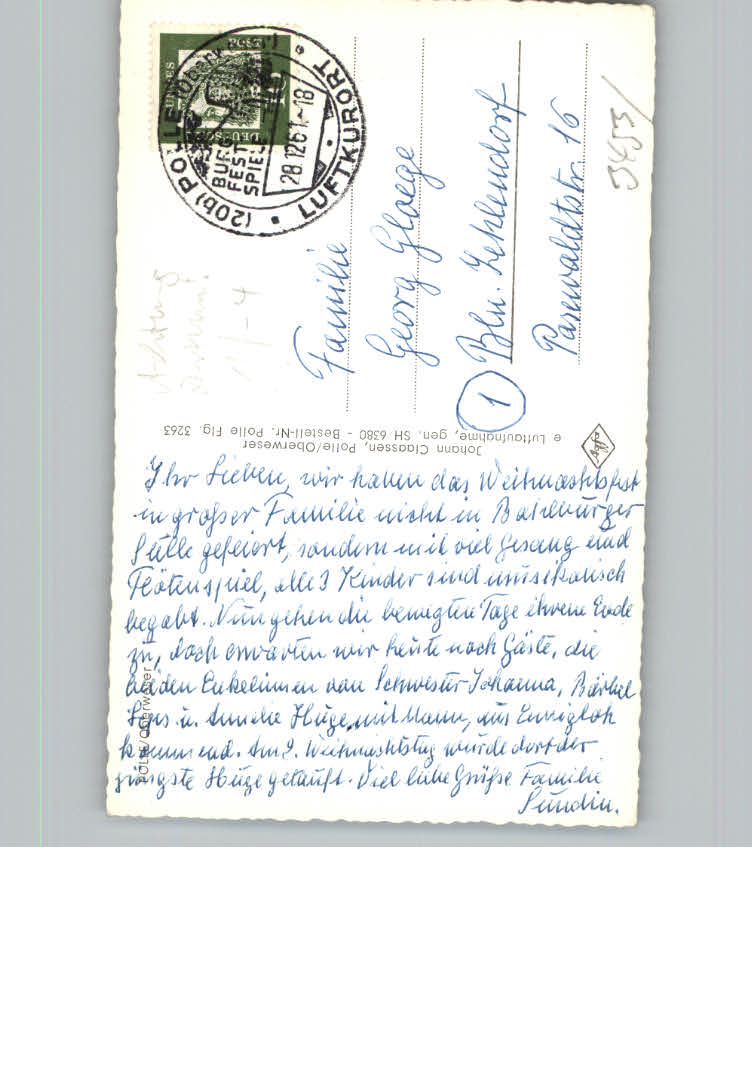 Ihr Lieben, wir haben das Weihnachtsfest
in großer Familie nicht in
Stille gefeiert, sondern mit viel Gesang und
Flötenspiel, alle 3 Kinder sind musikalisch
begabt. Nun gehen die bewegten Tage ihrem Ende
zu, doch erwarten wir heute noch Gäste, die
beiden Enkelinnen von Schwester Johanna, Bärbel
u. Annelie Huge mit Mann, aus
kommend. Am 2. Weihnachtstag wurde dort der
jüngste Huge getauft. Viel liebe Grüße Familie
Sundin.
Familie
Georg Gloege
1 Bln. Zehlendorf
Pasewaldtstr. 16
(20b) POLLE
LUFTKURORT
BURG
FEST
SPIELE
28.12.61.-18
DEUTSCHE
Johann Claassen, Polle/Oberweser
e Luftaufnahme, gen. SH 6380 - Bestell-Nr. Polle Flg. 3263
POLLE/Oberweser